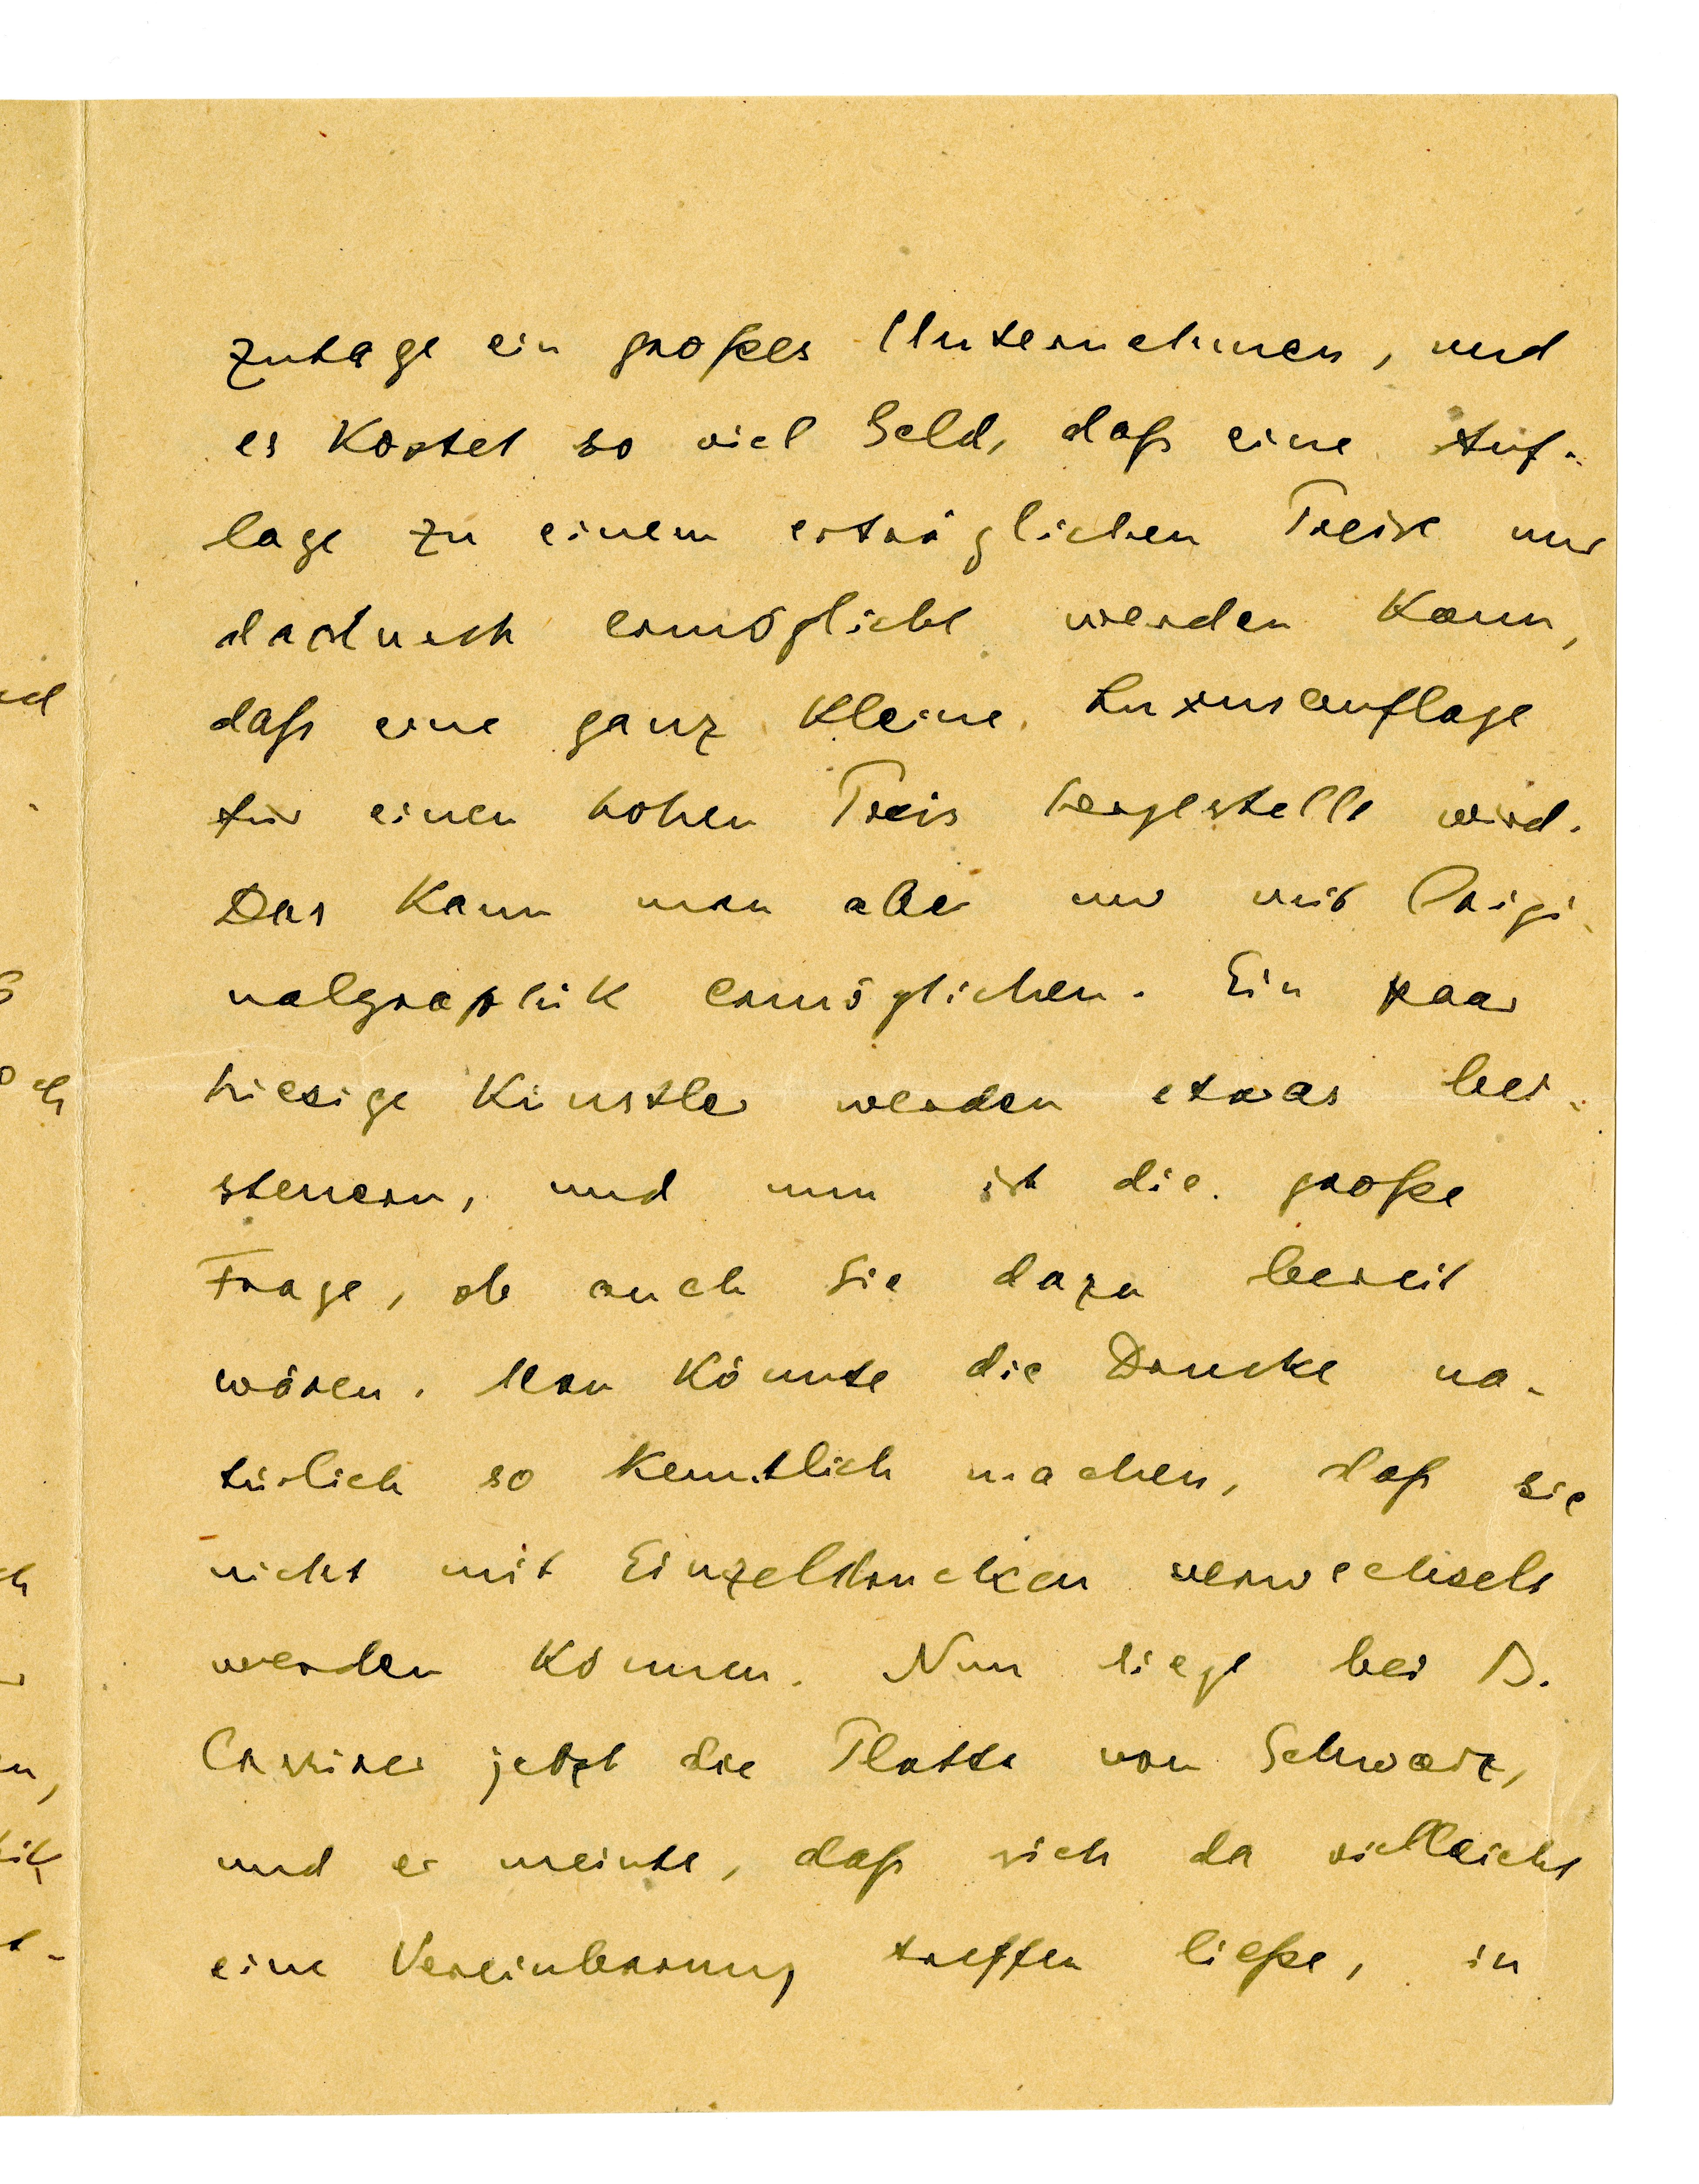 zutage ein großes Unternehmen, und
es kostet so viel Geld, daß eine Auf-
lage zu einem erträglichen Preise nur
dadurch ermöglicht werden kann,
daß eine ganz kleine Luxusauflage
für einen hohen Preis hergestellt wird.
Das kann man aber nur mit Origi-
nalgraphik ermöglichen. Ein paar
hiesige Künstler werden etwas bei-
steuern, und nun ist die große
Frage, ob auch Sie dazu bereit
wären. Man könnte die Drucke na-
türlich so kenntlich machen, daß sie
nicht mit Einzeldrucken verwechselt
werden können. Nun liege bei B.
Cassirer jetzt die Platte von Schwarz,
und er meinte, daß sich da vielleicht
eine Vereinbarung treffen ließe, in